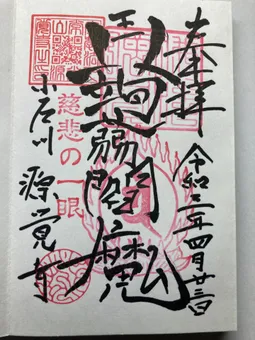 奉拝
令和三年四月廿三日
蒟蒻閻魔
慈悲の一眼
小石川 源覚寺